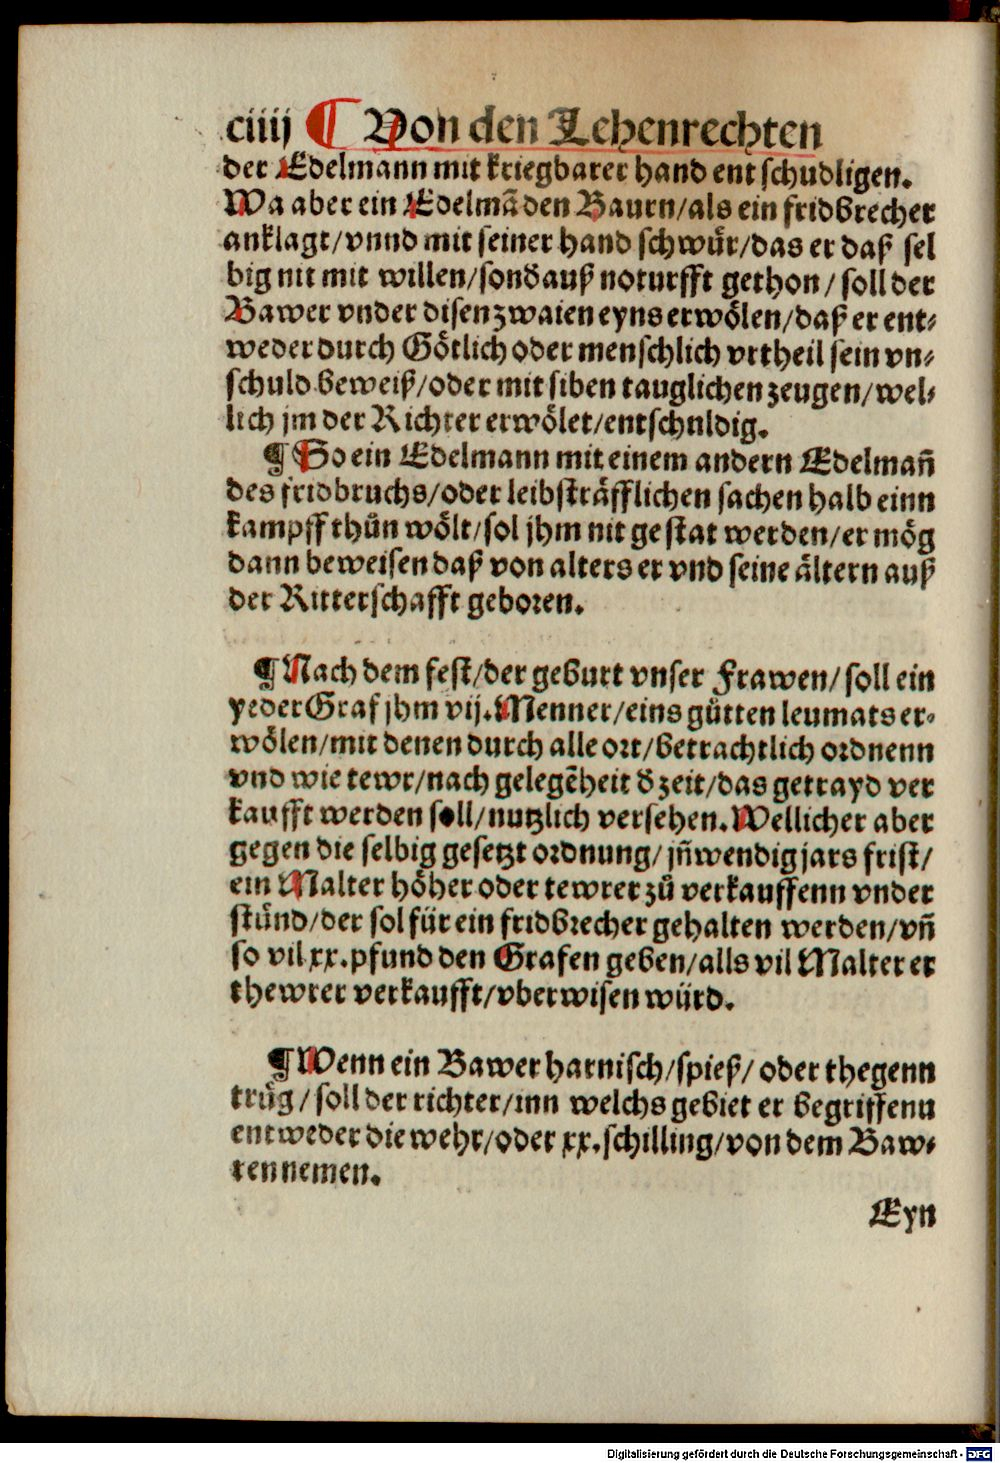 ciiij ¶ Von den Lehenrechten
der Edelmann mit kriegbarer hand ent schudligen.
Wa aber ein Edelmã den Baurn/als ein fridbrecher
anklagt/vnnd mit seiner hand schwür/das er daß sel
big nit mit willen/sonđ auß noturfft gethon/ soll der
Bawer vnder disen zwaien eyns erwölen/daß er ent⸗
weder durch Götlich oder menschlich vrtheil sein vn⸗
schuld beweiß/oder mit siben tauglichen zeugen/wel⸗
lich jm der Richter erwölet/entschuldig.
¶ So ein Edelmann mit einem andern Edelmañ
des fridbruchs/oder leibsträfflichen sachen halb einn
kampff thůn wölt/sol jhm nit ge stat werden/er mög
dann beweisen daß von alters er vnd seine ältern auß
der Ritterschafft geboren.
¶ Nach dem fest/der geburt vnser Frawen/soll ein
yeder Graf jhm vij. Menner/eins gůtten leumats er⸗
wölen/mit denen durch alle ort/betrachtlich ordnenn
vnd wie tewr/nach gelegẽheit đ zeit/das getrayd ver
kaufft werden soll/nutzlich versehen. Wellicher aber
gegen die selbig gesetzt ordnung/jñwendig jars frist/
ein Malter höher oder tewrer zů verkauffenn vnder
stůnd/der sol für ein fridbrecher gehalten werden/vñ
so vil xx. pfund den Grafen geben/alls vil Malter er
thewrer verkaufft/vberwisen würd.
¶ Wenn ein Bawer harnisch/spieß/ oder thegenn
trůg/soll der richter/inn welchs gebiet er begriffenn
entweder die wehr/oder xx. schilling/von dem Baw⸗
ren nemen.
Eyn
Digitalisierung gefördert durch die Deutsche Forschungsgemeinschaft - DFG